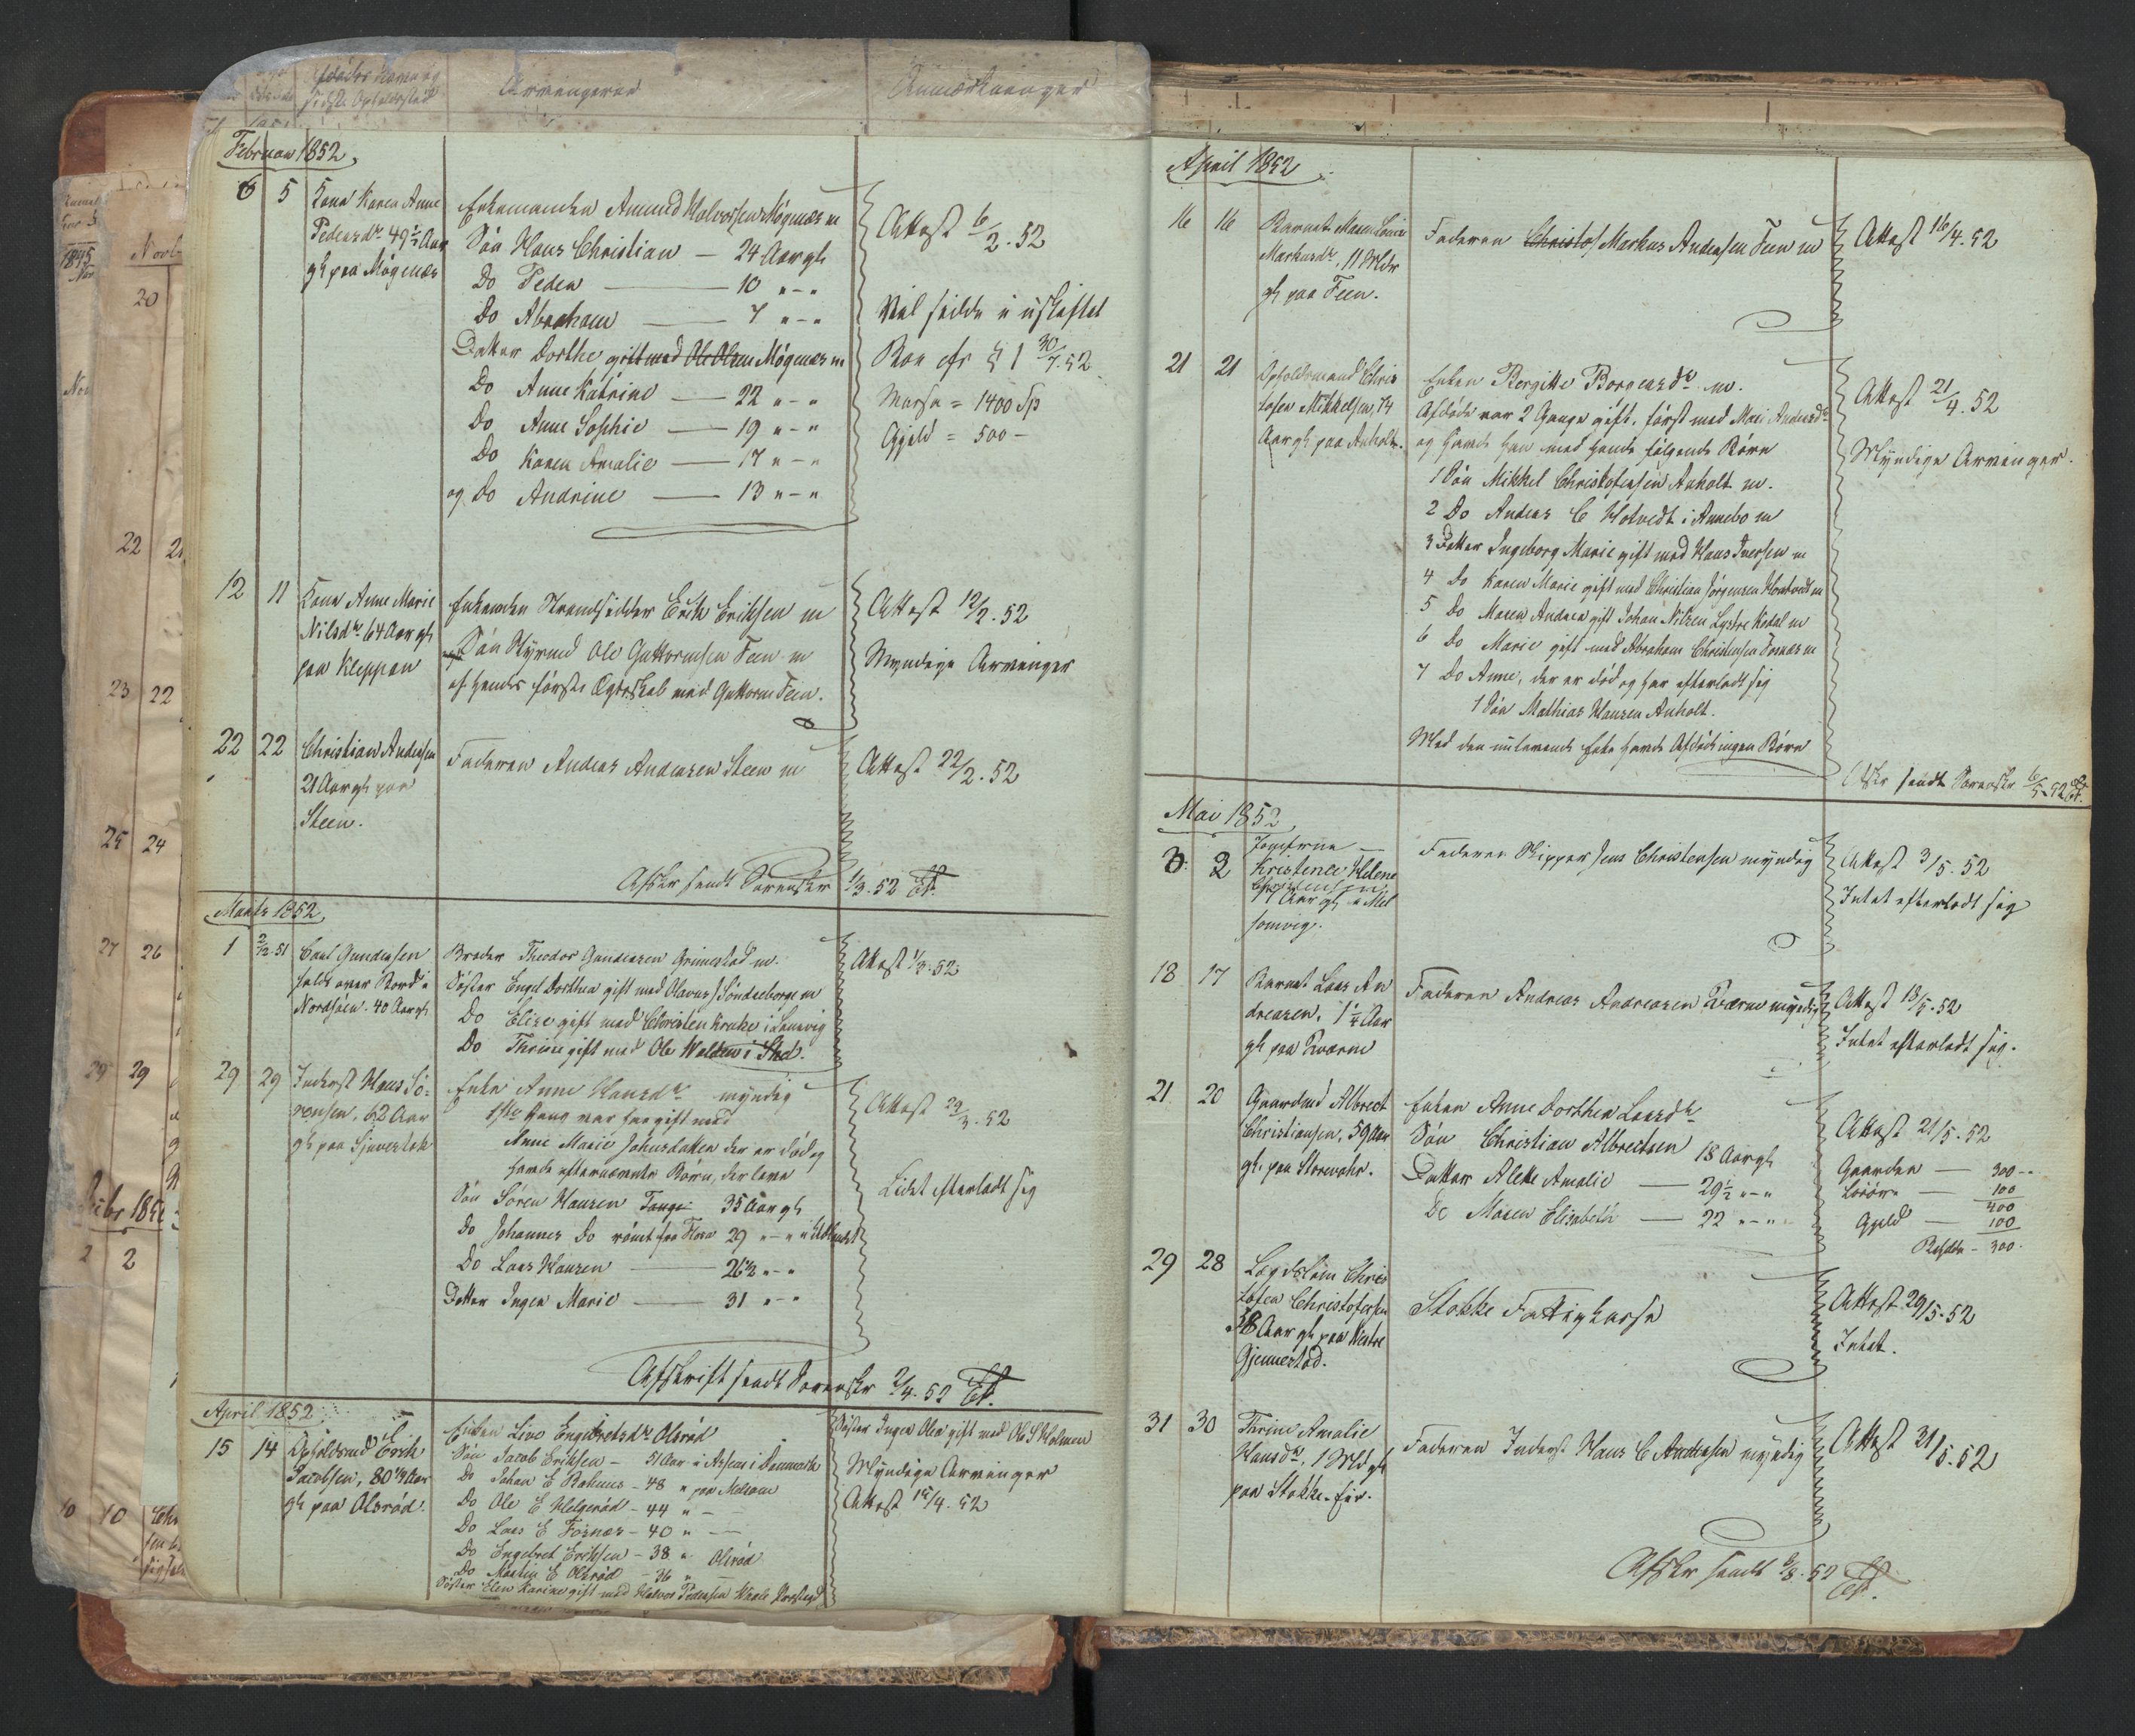 Arvingerne
Anmærkninger
Februar 1852.
6 5 Kone Karen Anne
Pedersdr. 49½ Aar
gl. paa Møgenæs
Enkemanden Amund Halvorsen Møgenæs m
Søn Hans Christian — 24 Aar gl.
Do Peder — 10 "-"
Do Abraham — 7 "-"
Datter Dorthe gift med Ole Olsen Møgenæs m
Do Anne Katrine — 22 "-"
Do Anne Sophie — 19 "-"
Do Karen Amalie — 17 "-"
og Do Andrine — 13 "-"
Attest 6/2. 52
Vil sidde i uskiftet
Boe efr § 1 30/7.52
Massa = 1400 Sp
Gjeld = 500 -
12 11 Kone Anne Marie
Nilsdr. 64 Aar gl.
paa Kleppan
Enkemden Strandsidder Erik Eriksen m
Søn Styrmd Ole Guttormsen Feen m
af hendes første Ægteskab med Guttorm Feen.
Attest 12/2. 52
Myndige Arvinger
22 22 Christian Andersen
21 Aar gl. paa
Steen.
Faderen Andreas Andreasen Steen m
Attest 22/2. 52
Afskr sendt Sorenskr 1/3. 52
Marts 1852.
1 2/12.51 Carl Gundersen
faldt over Bord i
Nordsøen. 40 Aar gl.
Broder Theodor Gundersen Grimestad m.
Søster Engel Dorthea gift med Olavus J Søndreborge m
Do Elise gift med Christen Krake i Laurvig
Do Thrine gift med Ole Walden i Sted.
Attest 1/3. 52
29 29 Inderst Hans Sö-
rensen, 62 Aar
gl. paa Gjennestad
Enke Anne Hansdr. myndig
1ste Gang var han gift med
Anne Marie Johnsdatter der er død og
havde efternævnte Børn, der leve
Søn Søren Hansen Tange 35 Aar gl.
Do Johannes Do rømt fra Flora 29 "-" i Udlandet
Do Lars Hansen — 26½ "-"
Datter Inger Marie — 31 "-"
Attest 29/3. 52
Lidet efterladt sig
Afskrift sendt Sorenskr 2/4. 52
April 1852
15 14 Opholdsmd Erik
Jacobsen, 80½ Aar
gl. paa Olsrød.
Enken Live Engebretsdr Olsrød
Søn Jacob Eriksen — 51 Aar i Assens i Danmark
Do Johan E Rakenes - 48 " paa Melsom
Do Ole E Helgerød - 44 " -
Do Lars E Fornæs - 40 " -
Do Engebret Eriksen - 38 " Olsrød
Do Martin E Olsrød - 36 " -
Søster Elen Karine gift med Halvor Pedersen
Søster Inger Olea gift med Ole S Holmen
Myndige Arvinger
Attest 15/4. 52
April 1852
16 16 Barnet Maren Louise
Markusdr, 11 Mdr
gl. paa Feen.
Faderen Christof Markus Andersen Feen m
Attest 16/4. 52
21 21 Opholdsmand Chris
tofer Mikkelsen, 74
Aar gl. paa Anholt.
Enken Bergitte Borgersdr m.
Afdøde var 2 Gange gift, først med Mari Andersdr
og havde han med hende følgende Børn
1 Søn Mikkel Christofersen Anholt m.
2 Do Anders C Hotvedt i Annebo m
3 Datter Ingeborg Marie gift med Hans Iversen m
4 Do Karen Marie gift med Christian Jørgensen Hotvedt m
5 Do Maren Andrea gift Johan Nilsen Lystre Kodal m
6 Do Marie gift med Abraham Christensen Fornæs m
7 Do Anne, der er død og har efterladt sig
1 Søn Mathias Hansen Anholt.
Med den nulevende Enke havde Afdøde ingen Børn
Attest 21/4. 52
Myndige Arvinger.
Afskr sendt Sorenskr 6/5. 52
Mai 1852
3 2 Jomfrue
Kristence Helene
Christensen
Aar gl. i Mel
somvig.
Faderen Skipper Jens Christensen myndig
Attest 3/5. 52
Intet efterladt sig
18 17 Barnet Lars An
dreasen, 1¼ Aar
gl. paa Kværne
Faderen Andreas Andreasen Kværne myndig
Attest 18/5. 52
Intet efterladt sig.
21 20 Gaardmd Albrect
Christiansen, 59 Aar
gl. paa Storevahr.
Enken Anne Dorthea Larsdr
Søn Christian Albrectsen 18 Aar gl
Datter Alette Amalie — 29½ "-"
Do Maren Elisabeth — 22 "-"
Attest 21/5. 52
Gaarden — 300 --
Løsøre — 100
400
Gjeld — 100
Beholdn - 300.
29 28 Lægdslem Chris
tofer Christofersen
38 Aar gl. paa Vestre
Gjennestad.
Stokke Fattigkasse
Attest 29/5. 52
Intet.
31 30 Thrine Amalie
Hansdr, 1 Md gl
paa Stokke-Eie.
Faderen Inderst Hans C Andersen myndig
Attest 31/5. 52
Afskr sendt 52